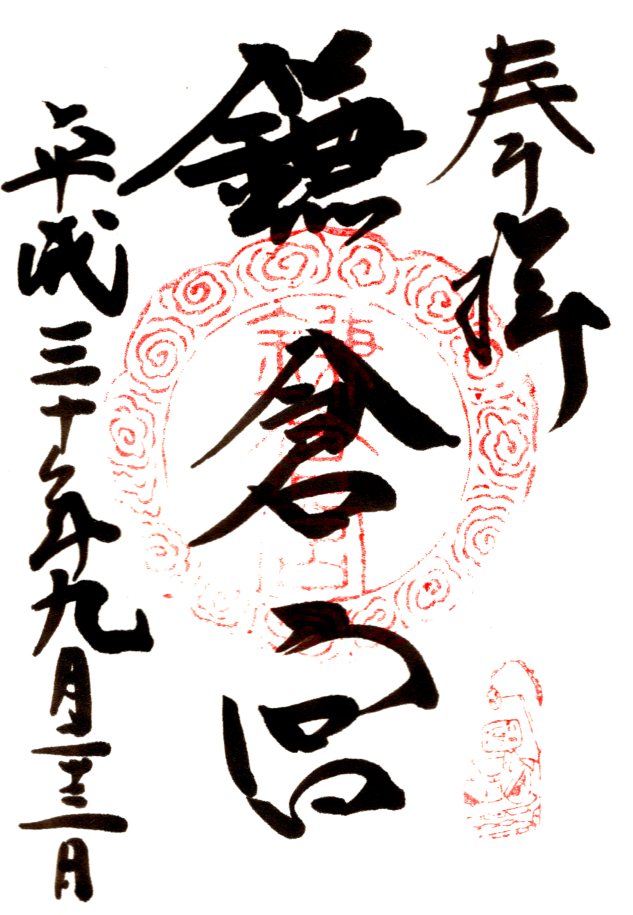 奉拝
鎌倉宮
平成三十年九月二十三日